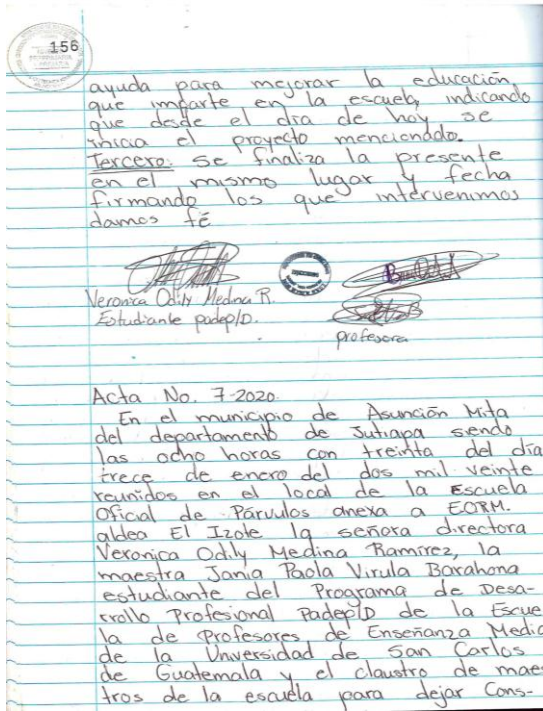 156
ayuda para mejorar la educación,
que imparte en la escuela, indicando
que desde el dia de hoy se
inicia el proyecto mencionado.
Tercero: se finaliza la presente
en el mismo lugar y fecha
firmando los que intervenimos
damos fé
Veronica Odily Medina R.
Estudiante padep/D.
profesora
Acta No. 7-2020.
En el municipio de Asunción Mita
del departamento de Jutiapa siendo
las ocho horas con treinta del día
trece de enero del dos mil veinte
reunidos en el local de la Escuela
Oficial de Párvulos anexa a EORM.
aldea El Izote la señora directora
Veronica Odily Medina Ramírez, la
maestra Jania Paola Virula Barahona
estudiante del Programa de Desa-
rrollo Profesional Padep/D de la Escue
la de Profesores de Enseñanza Media
de la Universidad de San Carlos
de Guatemala y el claustro de maes
tros de la escuela para dejar Cons-